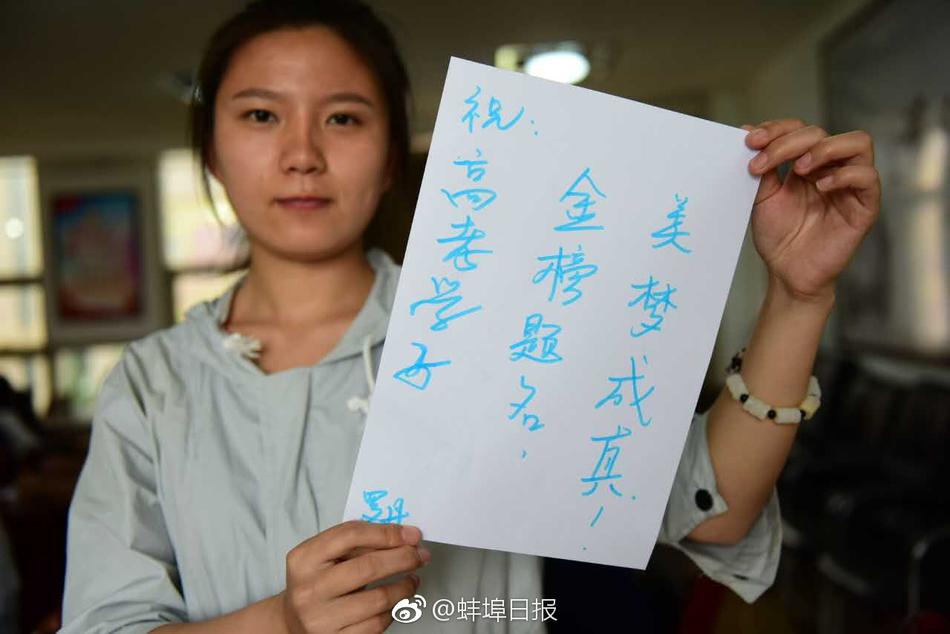 祝：
高考学子
金榜题名，
美梦成真！
@蚌埠日报